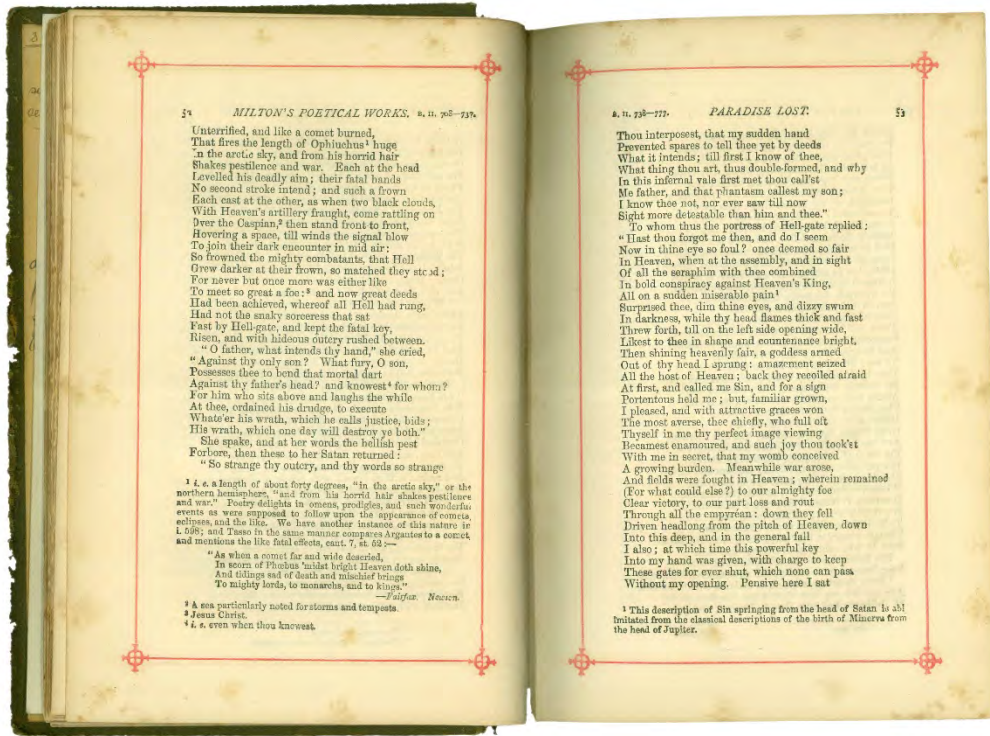 52 MILTON'S POETICAL WORKS. B. II. 708—737.
Unterrified, and like a comet burned,
That fires the length of Ophiuchus¹ huge
In the arctic sky, and from his horrid hair
Shakes pestilence and war. Each at the head
Levelled his deadly aim; their fatal hands
No second stroke intend; and such a frown
Each cast at the other, as when two black clouds,
With Heaven's artillery fraught, come rattling on
Over the Caspian,² then stand front to front,
Hovering a space, till winds the signal blow
To join their dark encounter in mid air:
So frowned the mighty combatants, that Hell
Grew darker at their frown, so matched they stood;
For never but once more was either like
To meet so great a foe:³ and now great deeds
Had been achieved, whereof all Hell had rung,
Had not the snaky sorceress that sat
Fast by Hell-gate, and kept the fatal key,
Risen, and with hideous outcry rushed between.
"O father, what intends thy hand," she cried,
"Against thy only son? What fury, O son,
Possesses thee to bend that mortal dart
Against thy father's head? and knowest⁴ for whom?
For him who sits above and laughs the while
At thee, ordained his drudge, to execute
Whate'er his wrath, which he calls justice, bids;
His wrath, which one day will destroy ye both."
She spake, and at her words the hellish pest
Forbore, then these to her Satan returned:
"So strange thy outcry, and thy words so strange
¹ i. e. a length of about forty degrees, "in the arctic sky," or the
northern hemisphere, "and from his horrid hair shakes pestilence
and war." Poetry delights in omens, prodigies, and such wonderful
events as were supposed to follow upon the appearance of comets,
eclipses, and the like. We have another instance of this nature in
i. 598; and Tasso in the same manner compares Argantes to a comet,
and mentions the like fatal effects, cant. 7, st. 52:—
"As when a comet far and wide descried,
In scorn of Phœbus 'midst bright Heaven doth shine,
And tidings sad of death and mischief brings
To mighty lords, to monarchs, and to kings."
—Fairfax. Newton.
² A sea particularly noted for storms and tempests.
³ Jesus Christ.
⁴ i. e. even when thou knowest.
B. II. 738—777. PARADISE LOST. 53
Thou interposest, that my sudden hand
Prevented spares to tell thee yet by deeds
What it intends; till first I know of thee,
What thing thou art, thus double-formed, and why
In this infernal vale first met thou call'st
Me father, and that phantasm callest my son;
I know thee not, nor ever saw till now
Sight more detestable than him and thee."
To whom thus the portress of Hell-gate replied:
"Hast thou forgot me then, and do I seem
Now in thine eye so foul? once deemed so fair
In Heaven, when at the assembly, and in sight
Of all the seraphim with thee combined
In bold conspiracy against Heaven's King,
All on a sudden miserable pain¹
Surprised thee, dim thine eyes, and dizzy swum
In darkness, while thy head flames thick and fast
Threw forth, till on the left side opening wide,
Likest to thee in shape and countenance bright,
Then shining heavenly fair, a goddess armed
Out of thy head I sprung: amazement seized
All the host of Heaven; back they recoiled afraid
At first, and called me Sin, and for a sign
Portentous held me; but, familiar grown,
I pleased, and with attractive graces won
The most averse, thee chiefly, who full oft
Thyself in me thy perfect image viewing
Becamest enamoured, and such joy thou took'st
With me in secret, that my womb conceived
A growing burden. Meanwhile war arose,
And fields were fought in Heaven; wherein remained
(For what could else?) to our almighty foe
Clear victory, to our part loss and rout
Through all the empyréan: down they fell
Driven headlong from the pitch of Heaven, down
Into this deep, and in the general fall
I also; at which time this powerful key
Into my hand was given, with charge to keep
These gates for ever shut, which none can pass
Without my opening. Pensive here I sat
¹ This description of Sin springing from the head of Satan is
imitated from the classical descriptions of the birth of Minerva from
the head of Jupiter.